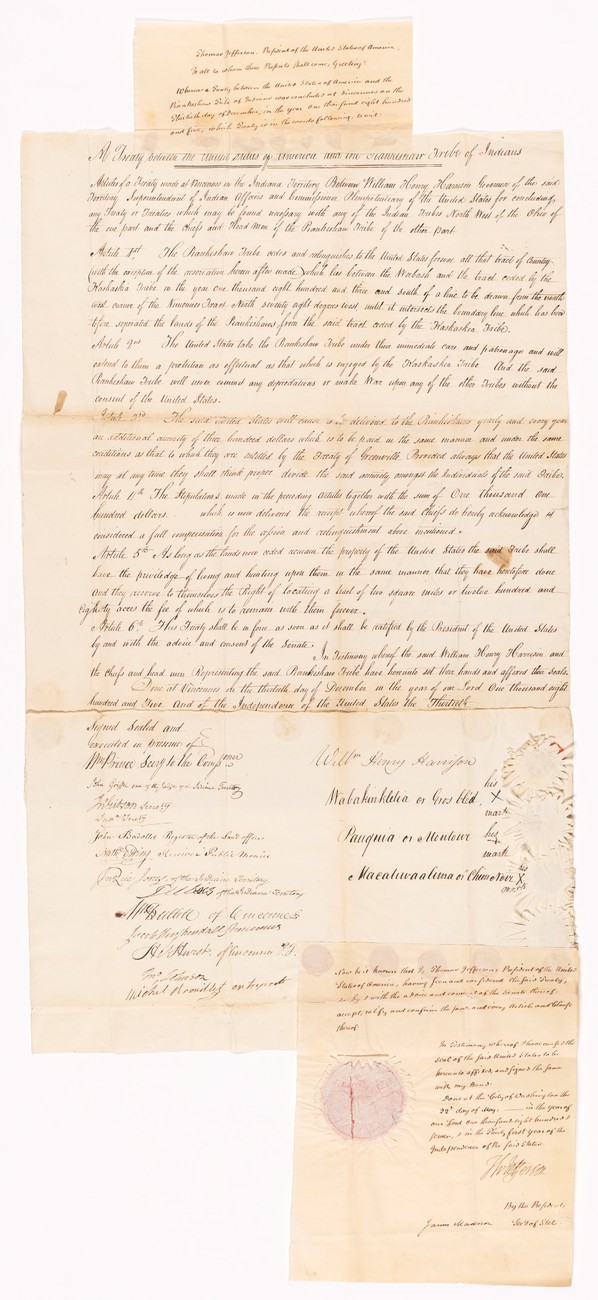 Thomas Jefferson, President of the United States of America,
To all to whom these Presents shall come, Greeting:
Whereas a Treaty between the United States of America and the
Piankeshaw Tribe of Indians was concluded at Vincennes on the
thirtieth day of December, in the year One thousand eight hundred
and five, which Treaty is in the words following, to wit:
A Treaty between the United States of America and the Piankeshaw Tribe of Indians
Articles of a Treaty made at Vincennes in the Indiana Territory Between William Henry Harrison Governor of the said
Territory Superintendent of Indian Affairs and Commissioner Plenipotentiary of the United States for concluding
any Treaty or Treaties which may be found necessary with any of the Indian Tribes North West of the Ohio of
the one part and the Chiefs and Head Men of the Piankeshaw Tribe of the other part
Article 1st. The Piankeshaw Tribe cedes and relinquishes to the United States forever all that tract of Country
(with the exception of the reservation herein after made) which lies between the Wabash and the tract ceded by the
Kaskaskia Tribe in the year one thousand eight hundred and three and south of a line to be drawn from the north
west corner of the Vincennes Tract North seventy eight degrees west until it intersects the boundary line which has here
tofore seperated the lands of the Piankeshaws from the said tract ceded by the Kaskaskia Tribe.
Article 2nd The United States take the Piankeshaw Tribe under their immediate care and patronage and will
extend to them a protection as effectual as that which is enjoyed by the Kaskaskia Tribe And the said
Piankeshaw Tribe will never commit any depredations or make War upon any of the other Tribes without the
consent of the United States.
Article 3rd The said United States will cause to be delivered to the Piankeshaws yearly and every year
an additional annuity of three hundred dollars which is to be paid in the same manner and under the same
conditions as that to which they are entitled by the Treaty of Greenville Provided always that the United States
may at any time they shall think proper divide the said annuity amongst the Individuals of the said Tribe.
Article 4th The Stipulations made in the preceding Articles together with the sum of One thousand one
hundred dollars which is now delivered the receipt whereof the said Chiefs do hereby acknowledge is
considered a full compensation for the cession and relinquishment above mentioned.
Article 5th As long as the lands now ceded remain the property of the United States the said Tribe shall
have the priviledge of living and hunting upon them in the same manner that they have heretofore done
And they reserve to themselves the Right of locating a tract of two square miles or twelve hundred and
eighty acres the fee of which is to remain with them forever.
Article 6th This Treaty shall be in force as soon as it shall be ratified by the President of the United States
by and with the advice and consent of the Senate.
In Testimony whereof the said William Henry Harrison and
the Chiefs and head men Representing the said Piankeshaw Tribe have hereunto set their hands and affixed their seals.
Done at Vincennes on the thirtieth day of December in the year of our Lord One thousand eight
hundred and Five And of the Independence of the United States the Thirtieth
Signed Sealed and
executed in presence of
Wm Prince Secry to the Commissioner
John Griffin one of the Judges of the Indiana Territory
Jno Gibson Secretary
John Badollet Register of the Land office
Nathl Ewing Receiver Public Monies
of the Indiana Territory
of the Indiana Territory
Wm Bullitt of Vincennes
Jacob Kuykendall Vincennes
H. Hurst of Vincennes I.T.
Jno Johnson
Michel Brouillet Interpreter
Willm Henry Harrison
Wabakinklelia or Gros bled, his X mark
Pauquia or Montour his X mark
Macatiwaaluna or Chien Noir his X mark
Now be it known that I, Thomas Jefferson President of the United
States of America, having seen and considered the said Treaty,
do by & with the advice and consent of the Senate thereof,
accept, ratify and confirm the same and every Article and Clause
thereof.
In Testimony whereof I have caused the
seal of the said United States to be
hereunto affixed, and signed the same
with my Hand.
Done at the City of Washington the
22d day of May, in the year of
our Lord one thousand eight hundred &
seven, & in the Thirty first year of the
Independence of the said States.
Th: Jefferson
By the President,
James Madison Secy of State